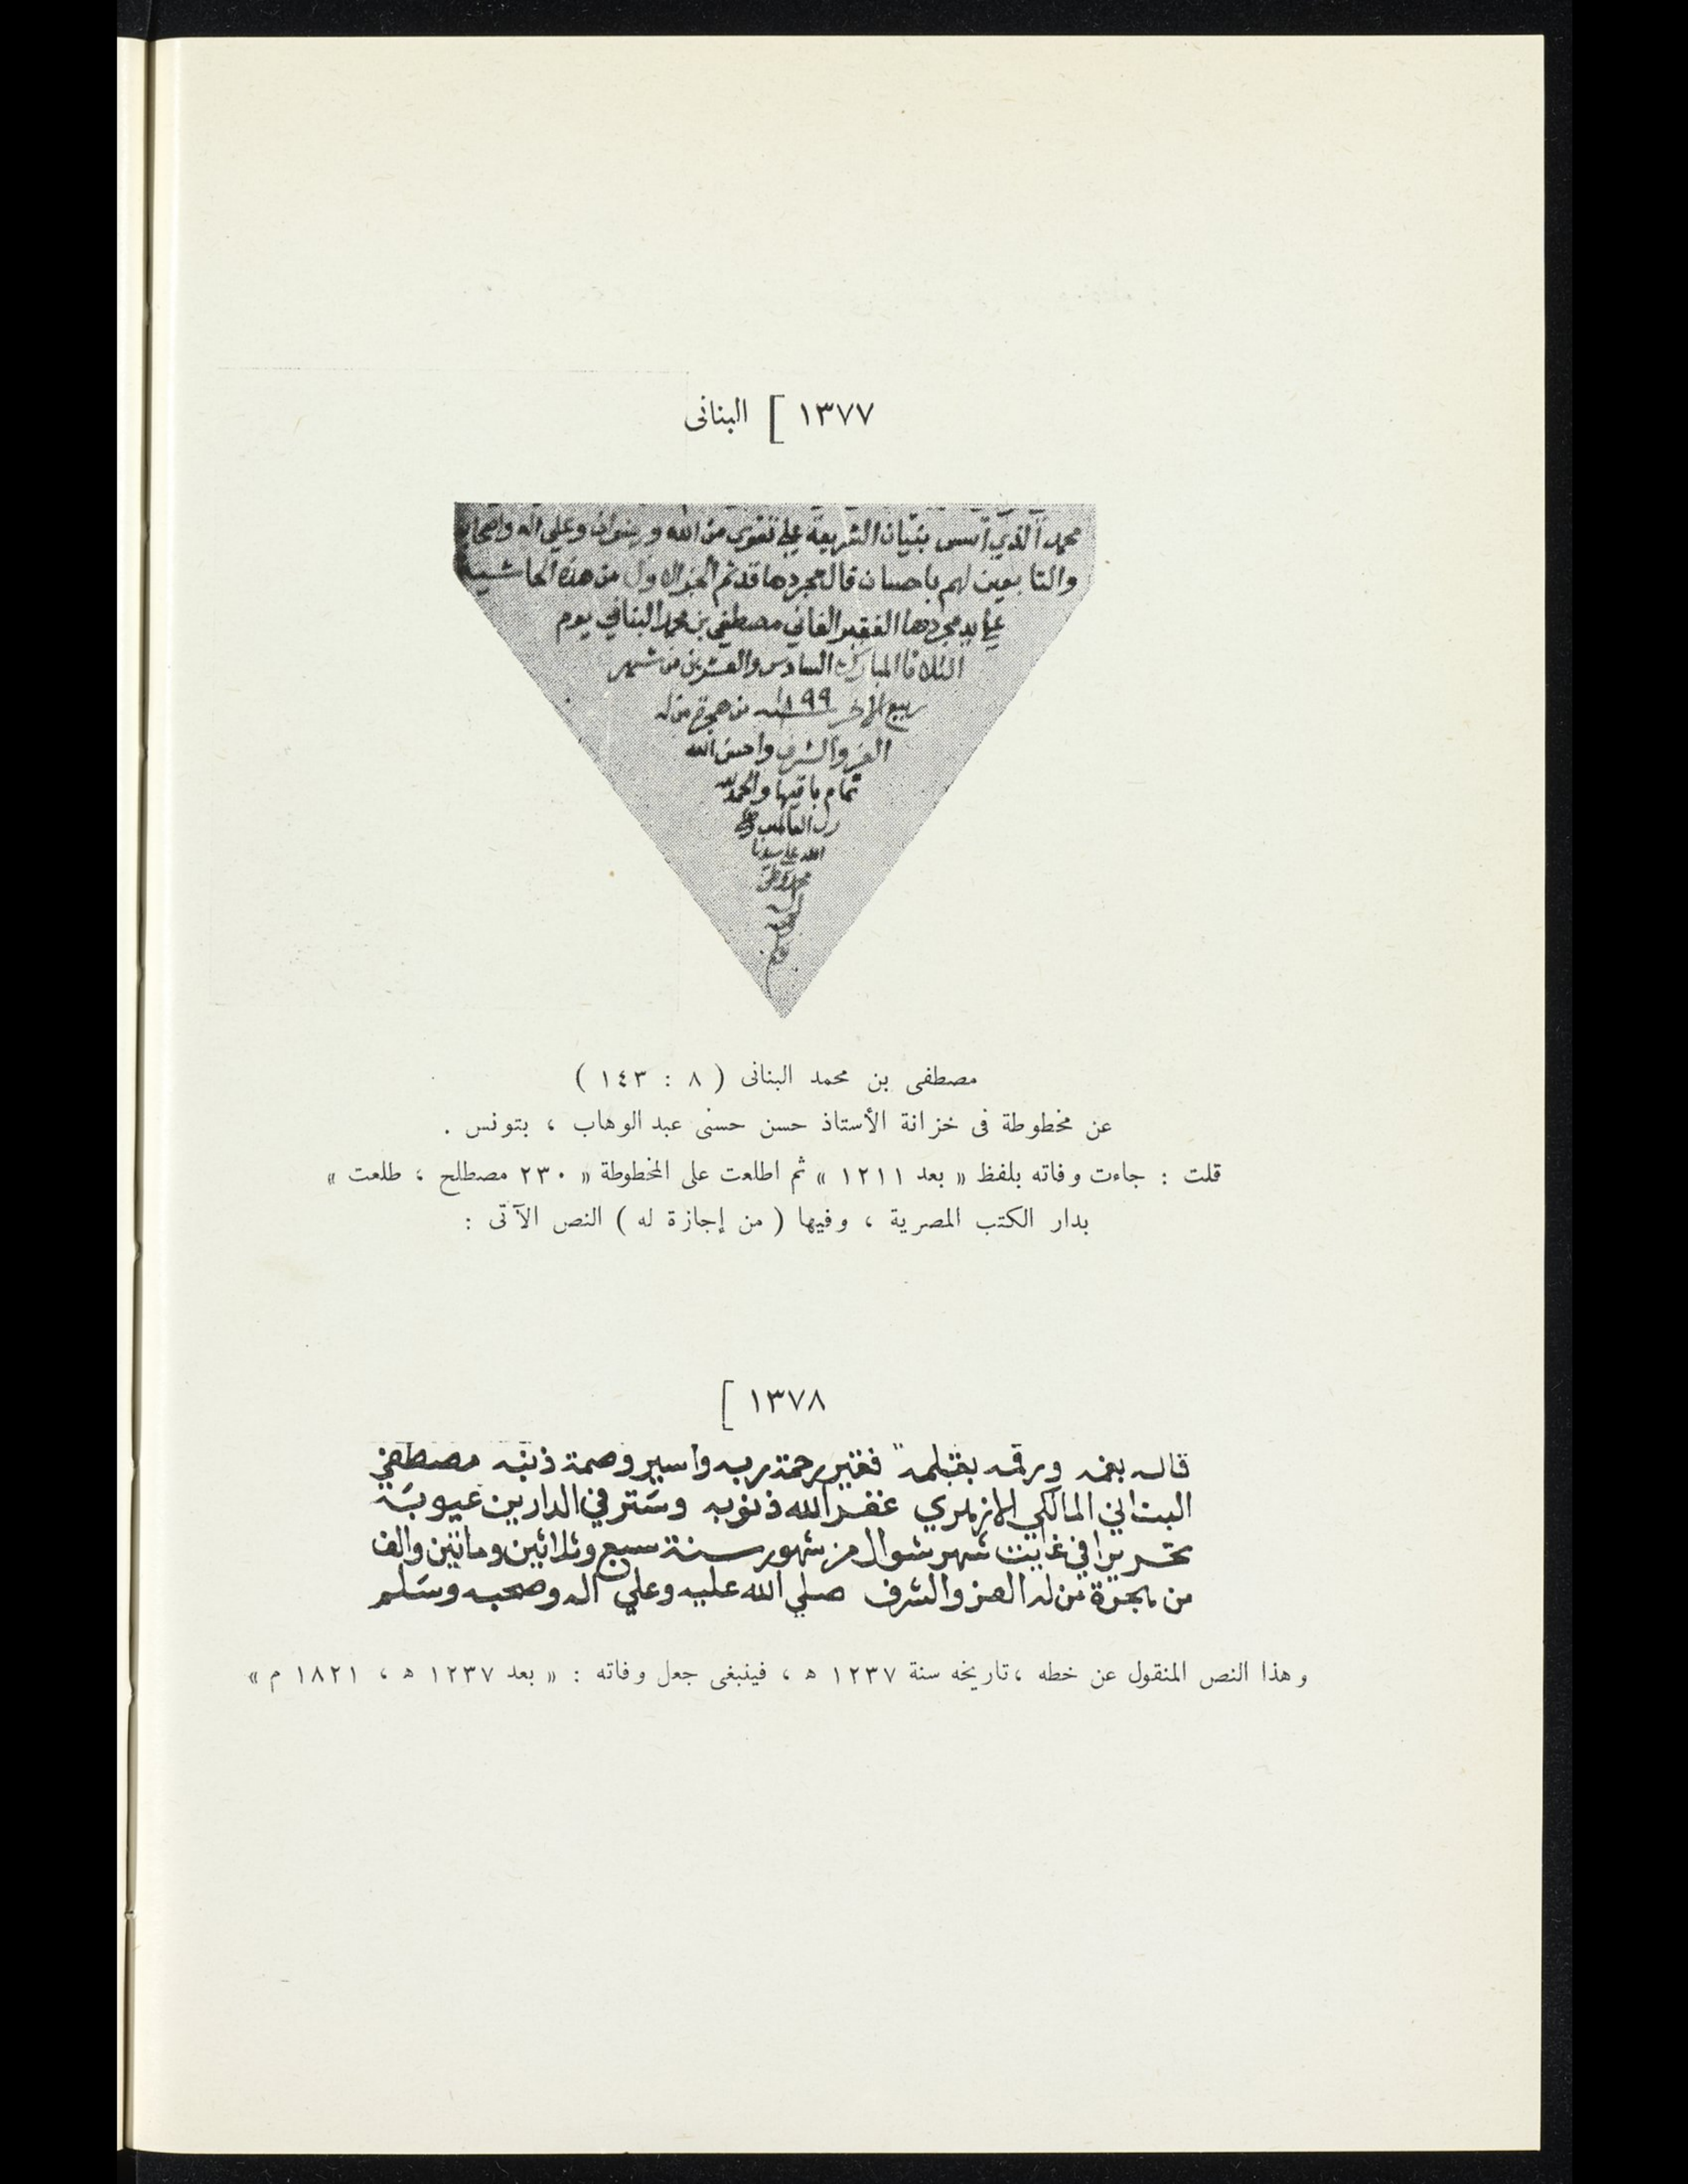 ١٣٧٧ [ البنانى
محمد الذي أسس بنيان الشريعة على تقوى من الله ورضوان وعلى اله واصحابه
والتابعين لهم باحسان قال مجردها قد تم الجزء الاول من هذه الحاشية
على يد مجردها الفقير الفاني مصطفى بن محمد البناني يوم
الثلاثا المبارك السادس والعشرين من شهر
ربيع الاخر سنة ١١٩٩ من هجرة من له
العز والشرف واحسن الله
تمام باقيها والحمد لله
رب العالمين
الله على سيدنا
محمد وعلى
مصطفى بن محمد البنانى ( ٨ : ١٤٣ )
عن مخطوطة فى خزانة الأستاذ حسن حسنى عبد الوهاب ، بتونس .
قلت : جاءت وفاته بلفظ « بعد ١٢١١ » ثم اطلعت على المخطوطة « ٢٣٠ مصطلح ، طلعت »
بدار الكتب المصرية ، وفيها ( من إجازة له ) النص الآتى :
١٣٧٨ [
قاله بفمه ورقمه بقلمه فقير رحمة ربه واسير وصمة ذنبه مصطفي
البناني المالكي الازهري غفر الله ذنوبه وستر في الدارين عيوبه
تحريرا في غايت شهر شوال من شهور سنة سبع وثلاثين ومائتين والف
من هجرة من له العز والشرف صلي الله عليه وعلي اله وصحبه وسلم
وهذا النص المنقول عن خطه ، تاريخه سنة ١٢٣٧ ه ، فينبغى جعل وفاته : « بعد ١٢٣٧ ه ، ١٨٢١ م »